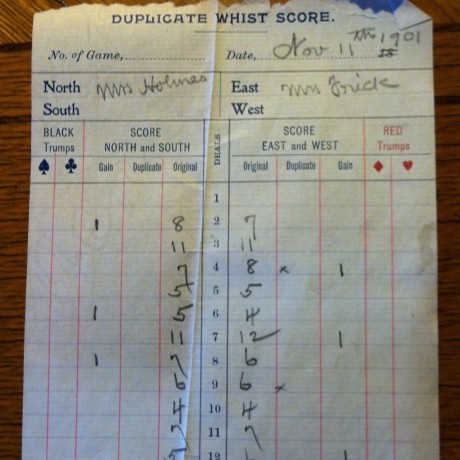 DUPLICATE WHIST SCORE.
No. of Game, Date, Nov 11th 1901
North Mrs Holmes East Mrs Frick
South West
BLACK Trumps SCORE NORTH and SOUTH DEALS SCORE EAST and WEST RED Trumps
♠ ♣ Gain Duplicate Original Original Duplicate Gain ♦ ♥
1
1 8 2 7
11 3 11
7 4 8 x 1
5 5 5
1 5 6 4
11 7 12 1
1 7 8 6
6 9 6 x
4 10 4
7 11 7
12